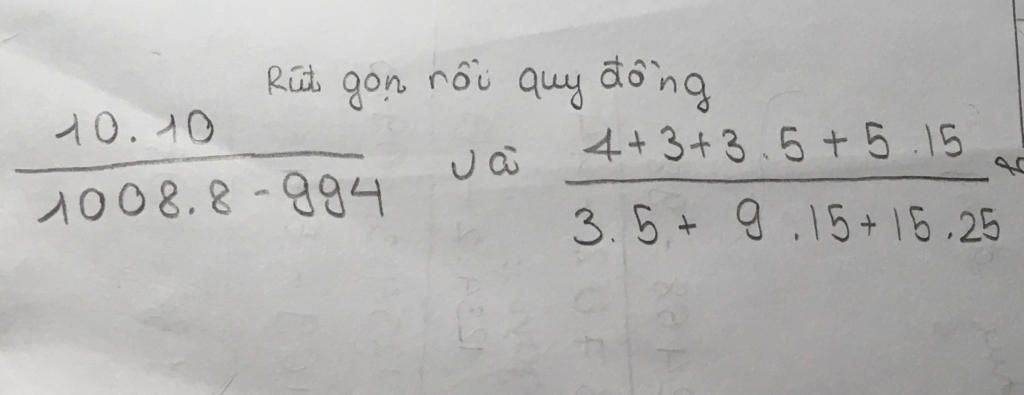 Rút gọn rồi quy đồng
10.10 / 1008.8 - 994 và 4+3+3.5+5.15 / 3.5+ 9.15+15.25